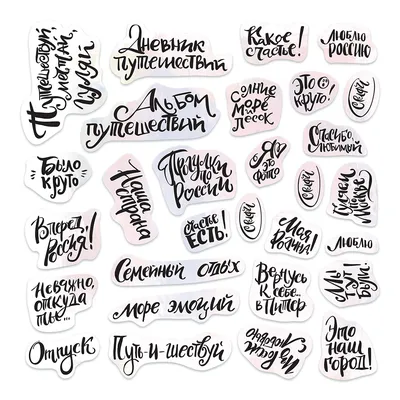 Путешествуй,
мечтай,
гуляй
Дневник
путешествий
Какое
счастье!
Люблю
Россию
Альбом
путешествий
Солнце
море
песок
Это
круто!
Спасибо,
любимый
Было
круто
Наша
страна
Прогулки
по
России
Я
это
фото
Вперед,
Россия!
Счастье
есть!
Моя
родина!
Люблю
Семейный отдых
Неважно,
откуда
ты...
море эмоций
Вернусь
к себе...
в Питер
Мы
тут
были!
Отпуск
Путь-и-шествуй
Это
наш
город!